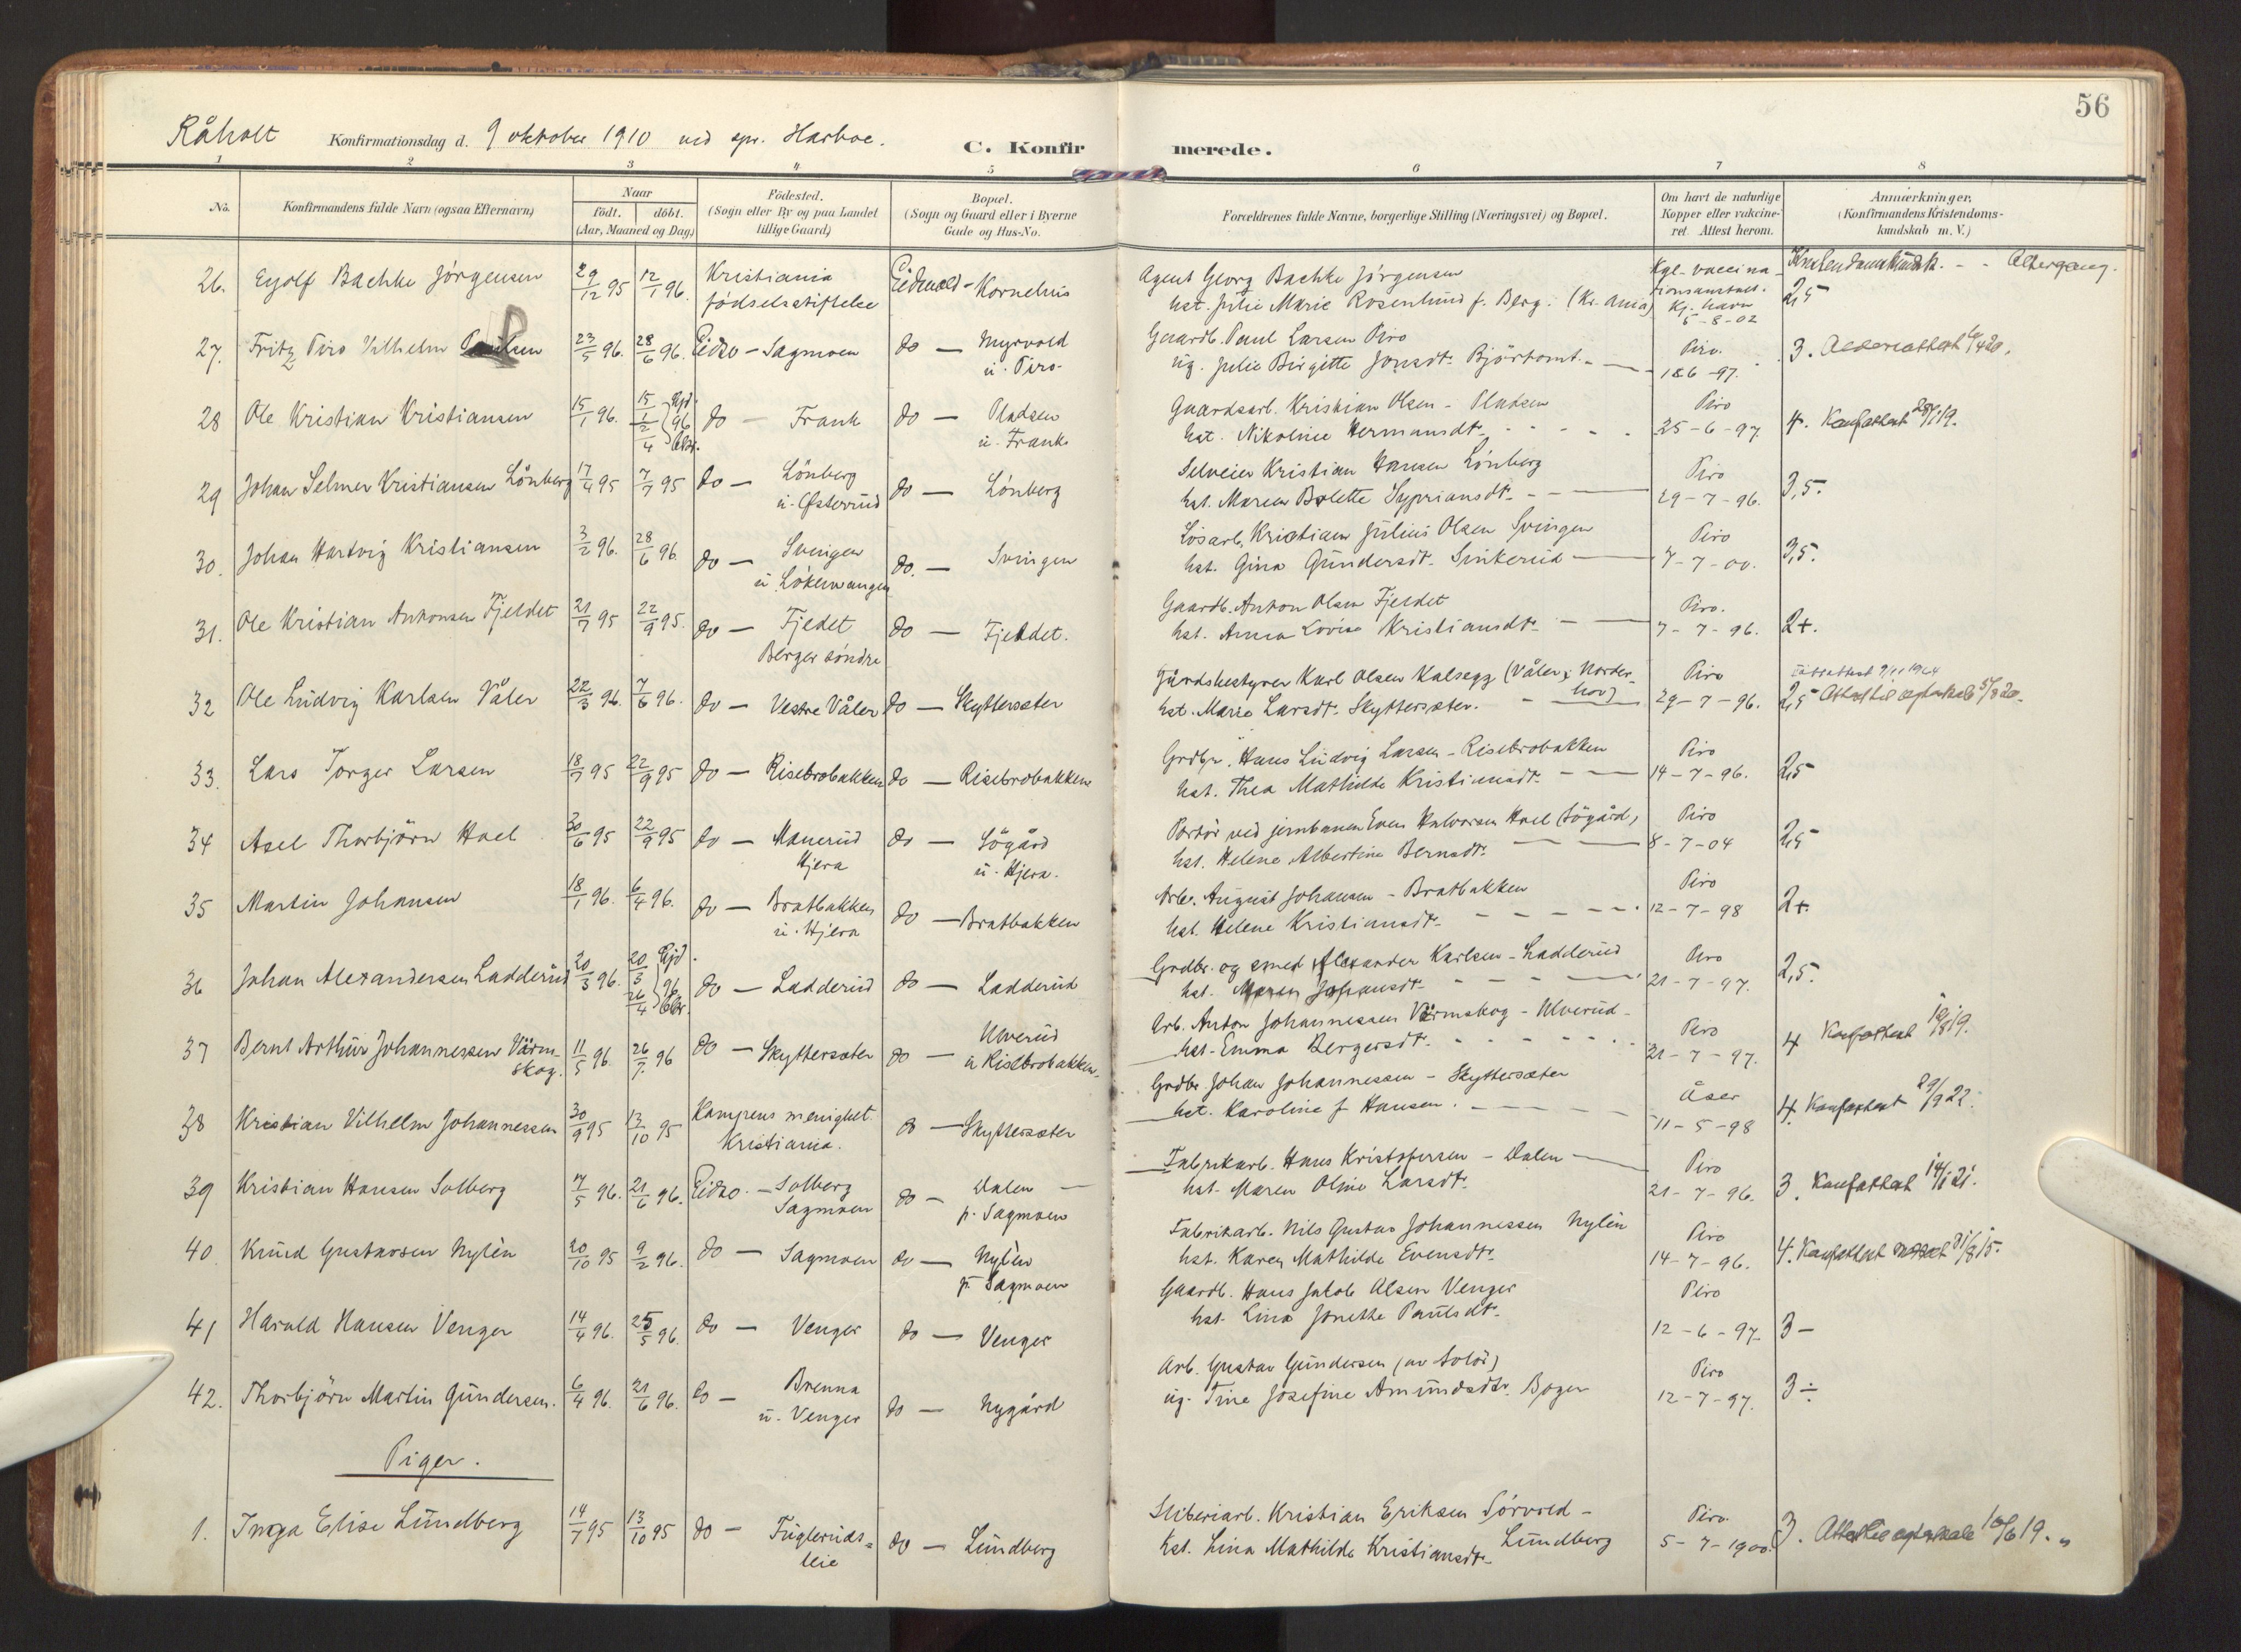 56
Råholt Konfirmationsdag d. 9 oktober 1910 ved spr. Harboe.
C. Konfirmerede.
1 2 3 4 5 6 7 8
No. Konfirmandens fulde Navn (ogsaa Efternavn) Naar födt. döbt. (Aar, Maaned og Dag) Födested. (Sogn eller By og paa Landet tillige Gaard) Bopæl. (Sogn og Gaard eller i Byerne Gade og Hus-No. Forældrenes fulde Navne, borgerlige Stilling (Næringsvei) og Bopæl. Om havt de naturlige Kopper eller vakcineret. Attest herom. Anmærkninger, (Konfirmandens Kristendomskundskab m. V.)
Kristendomskundsk. - - Altergang.
26. Eyolf Bachke Jørgensen 29/12 95 12/1 96. Kristiania Eidsvold - Kornelius Agent Georg Bachke Jørgensen Kgl. vaccina-
fødselsstiftelse hst. Julie Marie Rosenlund f. Berg. (Kr.ania) tionsanstalt. Kj.havn 5-8-02 2,5
27. Fritz Piro Vilhelm 23/5 96. 28/6 96. Eidsv - Sagmoen do - Myrvold Gaardb. Paul Larsen Piro Piro. 3.
u. Piro. ug. Julie Birgitte Jonsdt. Bjørtomt. 18-6-97.
28 Ole Kristian Kristiansen 15/1 96. 15/1 96 Hjd. do - Frank do - Pladsen Gaardsarb. Kristian Olsen - Pladsen Piro 4. Konfattest 28/1 19.
2/4 u. Frank hst. Nikoline Hermansdt. 25-6-97
29 Johan Selmer Kristiansen Lönberg 17/4 95 7/7 95 do - Lönberg do - Lönberg Selveier Kristian Hansen Lönberg Piro 3,5.
u. Østerrud hst. Maren Bolette Sypriansdt. 29-7-96.
30. Johan Hartvig Kristiansen 3/2 96. 28/6 96 do - Svingen do. - Svingen Løsarb. Kristian Julius Olsen Svingen Piro 3,5.
u Løkenvangen hst. Gina Gundersdt. Sinkerud 7-7-00.
31. Ole Kristian Antonsen Fjeldet 21/7 95 22/9 95. do - Fjedet do - Fjeldet. Gaardb. Anton Olsen Fjeldet Piro. 2+.
Berger søndre hst. Anna Lovise Kristiansdt. 7-7-96.
32 Ole Ludvig Karlsen Våler 22/3 96. 7/6 96. do - Vestre Våler do - Skyttersæter Gårdsbestyrer Karl Olsen Kalsegg (Våler i Norder- Piro
hov) hst. Marie Larsdt. Skyttersæter. 29-7-96. 2,5
33. Lars Torger Larsen 18/7 95 22/9 95 do - Risebrobakken do - Risebrobakken Grdbr. Hans Ludvig Larsen - Risebrobakken Piro 2,5
hst. Thea Mathilde Kristiansdt. 14-7-96.
34 Axel Thorbjörn Hoel 30/6 95 22/9 95 do - Manerud do - Sögård Portör ved jernbanen Even Halvorsen Hoel (Sögård) Piro 2,5
Hjera u. Hjera. hst. Helene Albertine Berndt. 8-7-04
35 Martin Johansen 18/1 96. 6/4 96. do - Bratbakken do - Bratbakken Arb. August Johansen - Bratbakken Piro 2+.
u. Hjera hst. Helene Kristiansdt. 12-7-98
36 Johan Alexandersen Ladderud 20/3 96. 20/3 Hjd. 96 do - Ladderud do - Ladderud Grdbr. og smed Alexander Karlsen - Ladderud Piro 2,5.
26/4 hst. Maren Johansdt. 21-7-97.
37 Bernt Arthur Johannessen Värm- 11/5 96. 26/7 96 do - Skyttersæter do - Ulverud Arb. Anton Johannessen Värmskog - Ulverud Piro 4 Konfattest 10/8 19.
skog. u Risebrobakken. hst. Emma Bergersdt. 21-7-97.
38 Kristian Vilhelm Johannessen 30/9 95 13/10 95 Kampens menighet do - Skyttersæter Grdbr Johan Johannessen - Skyttersæter Åser 4. Konfattest 29/9 22.
Kristiania. hst. Karoline f Hansen. 11-5-98
39 Kristian Hansen Solberg 7/5 96. 21/6 96. Eidsv. - Solberg do - Dalen Fabrikarb. Hans Kristofersen - Dalen Piro 3. Konfattest 14/1 21.
Sagmoen p. Sagmoen hst. Maren Oline Larsdt. 21-7-96.
40 Knud Gustavsen Nylèn 20/10 95 9/2 96. do - Sagmoen do - Nylèn Fabrikarb. Nils Gustav Johannessen Nylèn Piro 4. Konfattest 31/8 15.
p. Sagmoen hst. Karen Mathilde Evensdt. 14-7-96.
41 Harald Hansen Venger 14/4 96. 25/5 96. do - Venger do - Venger Gaardb. Hans Jakob Olsen Venger Piro
hst. Lina Jonette Paulsdt. 12-6-97. 3-
42. Thorbjörn Martin Gundersen. 6/4 96. 21/6 96. do - Brenna do - Nygård Arb. Gustav Gundersen (av Solör) Piro 3÷
u. Venger ug. Tine Josefine Amundsdtr. Boger 12-7-97.
Piger.
1. Inga Elise Lundberg 14/7 95 13/10 95 do - Fuglerids- do - Lundberg Sliberiarb. Kristian Eriksen Sörvold - Piro. 3.
leie Lundberg hst. Lina Mathilde Kristiansdt. 5-7-1900. 10/6 19.